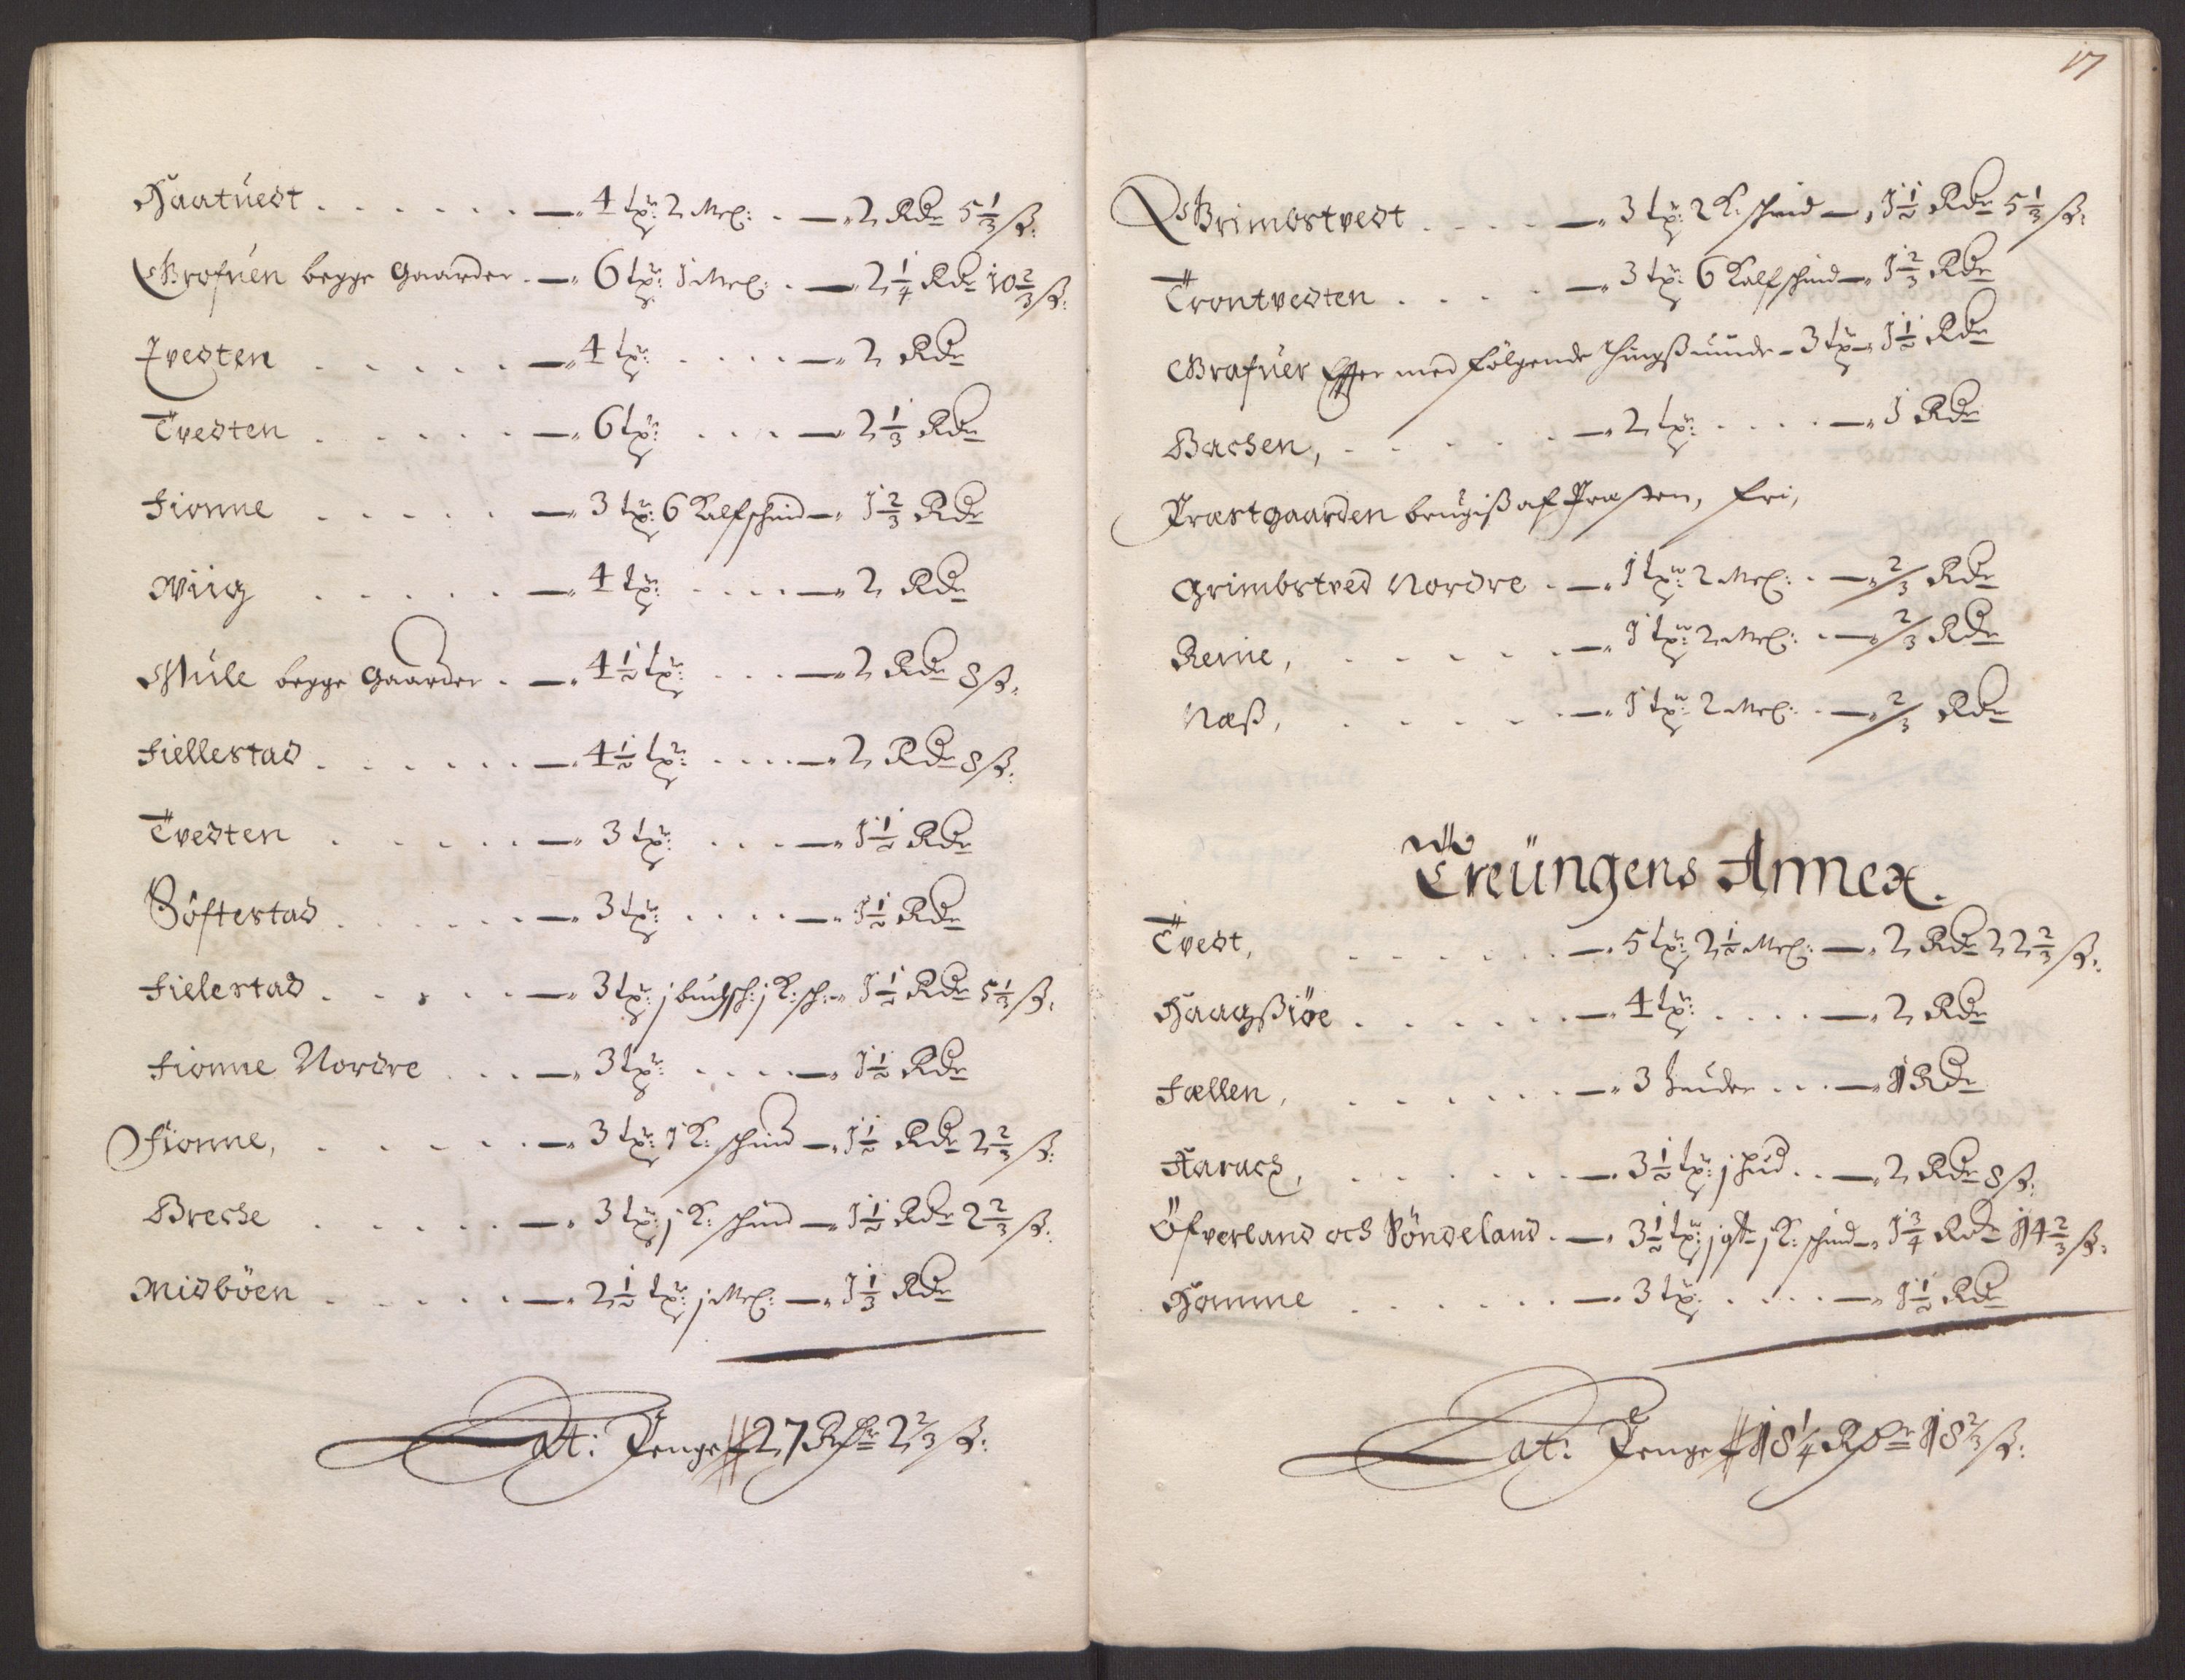 Haatuedt . . . . . . — 4 tpr: 2 Mel: . — 2 Rdr 5 1/3 ß:
Grofuen begge Gaarder . — 6 tpr: 1 Mel: . — 2 1/4 Rdr 10 2/3 ß:
Tvedten . . . . . — 4 tpr: . . . . — 2 Rdr
Tvedten . . . . . — 6 tpr: . . . . — 2 1/3 Rdr
Fionne . . . . . — 3 tpr: 6 Kalfschind — 1 2/3 Rdr
Wiig . . . . . — 4 tpr: . . . . — 2 Rdr
Mule begge Gaarder . — 4 1/2 tpr: . . . — 2 Rdr 8 ß.
Fiellestad . . . . . . — 4 1/2 tpr: . . . . — 2 Rdr 8 ß:
Tvedten . . . . . — 3 tpr: . . . — 1 1/2 Rdr
Söftestad . . . . . — 3 tpr: . . . . — 1 1/2 Rdr
Fielestad . . . . . — 3 tpr: j buchsch: j K: sch: — 1 1/2 Rdr 5 1/3 ß.
Fionne Nordre . . . — 3 tpr: . . . . — 1 1/2 Rdr
Fionne, . . . . . — 3 tpr: 1 K: schind — 1 1/2 Rdr 2 2/3 ß:
Breche . . . . . — 3 tpr: j K: schind — 1 1/2 Rdr 2 2/3 ß:
Midböen . . . . . — 2 1/2 tpr: j Mel: — 1 1/3 Rdr
Lat: Penge # 27 Rdr 2 2/3 ß:
17
Grimbstvedt . . . . — 3 tpr: 2 K: schind — 1 1/2 Rdr 5 1/3 ß:
Trontvedten . . . . — 3 tpr: 6 Kalfschind — 1 2/3 Rdr
Grafuer Efter med følgende Thingßuunde — 3 tpr — 1 1/2 Rdr
Bachen, . . . . . — 2 tpr: . . . . — 1 Rdr
Præstgaarden brugiß af Præsten, fri,
Grimbstved Nordre . — 1 tpr: 2 Mel: . — 2/3 Rdr
Reine, . . . . . — 1 tpr: 2 Mel: . — 2/3 Rdr
Næß, . . . . . — 1 tpr: 2 Mel: . — 2/3 Rdr
Treüngens Annex.
Tvedt, . . . . . . — 5 tpr: 2 1/2 Mel: — 2 Rdr 22 2/3 ß.
Haagßiöe . . . . . . — 4 tpr: . . . . — 2 Rdr
Fællen, . . . . . . — 3 huder . . . — 1 Rdr
Aarach, . . . . . . — 3 1/2 tpr: j hud . . — 2 Rdr 8 ß.
Öfverland och Söndeland . — 3 1/2 tpr: j gst j K: schind — 1 3/4 Rdr 14 2/3 ß.
Homme . . . . . . — 3 tpr: . . . . — 1 1/2 Rdr
Lat: Penge # 18 1/4 Rdr 18 2/3 ß: